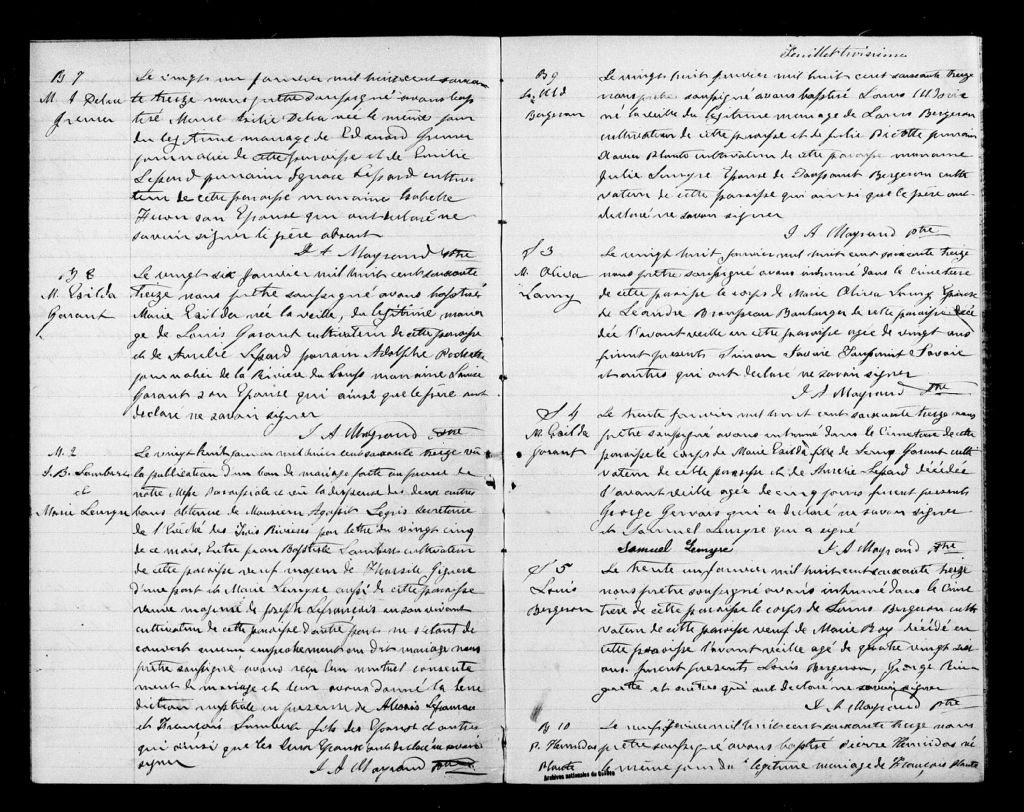 B 7
M. I Delia
Grenier
Le vingt un janvier mil huit cent soixan
te treize nous prêtre soussigné avons bap
tisé Marie Delia née le même jour
du légitime mariage de Edouard Grenier
journalier de cette paroisse et de Emilie
Lesard parrain Ignace Lesard cultiva
teur de cette paroisse marraine Isabelle
son Epouse qui ont déclaré ne
savoir signer le père absent
J A Mayrand ptre
B 8
M. Exilda
Garant
Le vingt six janvier mil huit cent soixante
treize nous prêtre soussigné avons baptisé
Marie Exilda née la veille, du légitime maria
ge de Louis Garant cultivateur de cette paroisse
et de Aurelie Lesard parrain Adolphe
journalier de la Rivière du Loup marraine Louise
Garant son Epouse qui ainsi que le père ont
déclaré ne savoir signer
J A Mayrand ptre
M. 2
J. B. Lambert
et
Marie Lemyre
Le vingt huit janvier mil huit cent soixante treize vu
la publication d'un ban de mariage faite au prone de
notre Messe Paroissiale et vu la dispense des deux autres
bans obtenue de Monsieur Agapit Legris Secretaire
de l'Evêché des Trois Rivières par lettre du vingt cinq
de ce mois, Entre Jean Baptiste Lambert cultivateur
de cette paroisse veuf majeur de Giguère
d'une part et Marie Lemyre aussi de cette paroisse
veuve majeure de Joseph Lefrancois en son vivant
cultivateur de cette paroisse d'autre part ne s'étant de
couvert aucun empêchement au dit mariage nous
prêtre soussigné avons reçu leur mutuel consente
ment de mariage et leur avons donné la béné
diction nuptiale en présence de Alexis Lefrancois
et François Lambert fils des Epoux et d'autres
qui ainsi que les deux Epoux ont déclaré ne savoir
signer
J A Mayrand ptre
Feuillet troisième
B 9
Ls. Ald
Bergeron
Le vingt huit janvier mil huit cent soixante treize
nous prêtre soussigné avons baptisé Louis
né la veille du légitime mariage de Louis Bergeron
cultivateur de cette paroisse et de Julie Ricotte parrain
Xavier Plante cultivateur de cette paroisse marraine
Julie Lemyre Epouse de Toussaint Bergeron culti
vateur de cette paroisse qui ainsi que le père ont
déclaré ne savoir signer
J A Mayrand ptre
S 3
M. Oliva
Lamy
Le vingt huit janvier mil huit cent soixante treize
nous prêtre soussigné avons inhumé dans le Cimetière
de cette paroisse le corps de Marie Oliva Lamy Epouse
de Léandre Boulanger de cette paroisse décé
dée l'avant veille en cette paroisse agée de vingt ans
furent presents Simon Savoie Toussaint Savoie
et autres qui ont déclaré ne savoir signer
J A Mayrand ptre
S 4
M. Exilda
Garant
Le trente janvier mil huit cent soixante treize nous
prêtre soussigné avons inhumé dans le Cimetière de cette
paroisse le corps de Marie Exilda fille de Louis Garant culti
vateur de cette paroisse et de Aurelie Lesard décédée
l'avant veille agée de cinq jours furent presents
George Gervais qui a déclaré ne savoir signer
et Samuel Lemyre qui a signé
Samuel Lemyre J A Mayrand ptre
S 5
Louis
Bergeron
Le trente un janvier mil huit cent soixante treize
nous prêtre soussigné avons inhumé dans le Cime
tière de cette paroisse le corps de Louis Bergeron culti
vateur de cette paroisse veuf de Marie Roy décédé en
cette paroisse l'avant veille agé de quatre vingt sept
ans furent presents Louis Bergeron, George
et autres qui ont déclaré ne savoir signer
J. A Mayrand ptre
B 10
P. Hermidas
Plante
Le neuf février mil huit cent soixante treize nous
prêtre soussigné avons baptisé Pierre Hermidas né
le même jour du légitime mariage de François Plante
Archives nationales du Québec